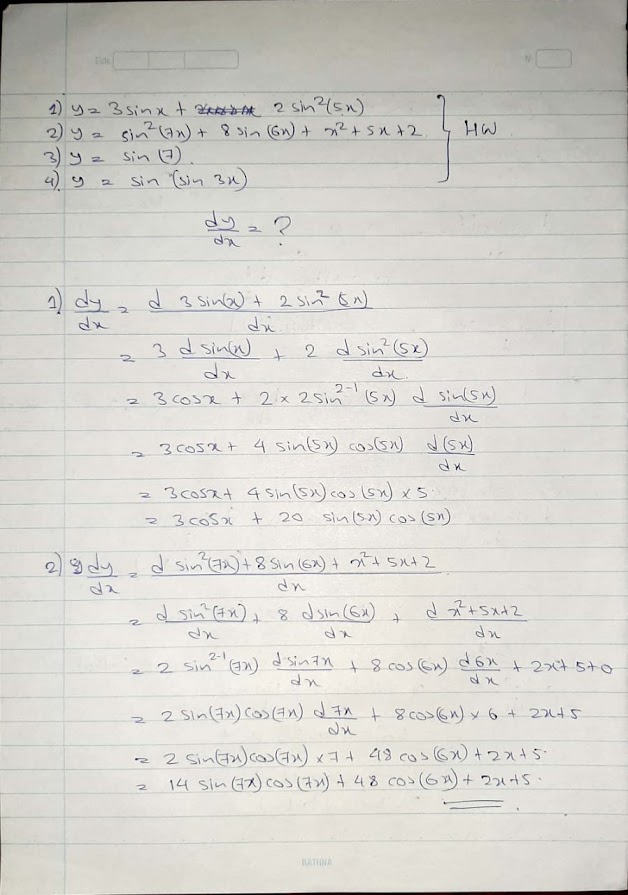 Date
N
1) y = 3 sinx + 2 sin²(5x)
2) y = sin²(7x) + 8 sin (6x) + x² + 5x + 2
3) y = sin (7).
4) y = sin (sin 3x)
HW
dy/dx = ?
1) dy/dx = d 3 sin(x) + 2 sin² (5x)/dx
= 3 d sin(x)/dx + 2 d sin²(5x)/dx
= 3 cosx + 2 × 2 sin²⁻¹ (5x) d sin(5x)/dx
= 3 cosx + 4 sin(5x) cos(5x) d(5x)/dx
= 3 cosx + 4 sin(5x) cos (5x) × 5
= 3 cosx + 20 sin(5x) cos (5x)
2) dy/dx = d sin²(7x) + 8 sin (6x) + x² + 5x + 2/dx
= d sin²(7x)/dx + 8 d sin(6x)/dx + d x²+5x+2/dx
= 2 sin²⁻¹ (7x) d sin7x/dx + 8 cos (6x) d6x/dx + 2x + 5 + 0
= 2 sin(7x) cos(7x) d 7x/dx + 8 cos(6x) × 6 + 2x + 5
= 2 sin(7x) cos(7x) × 7 + 48 cos (6x) + 2x + 5.
= 14 sin (7x) cos (7x) + 48 cos (6x) + 2x + 5.
RATHNA